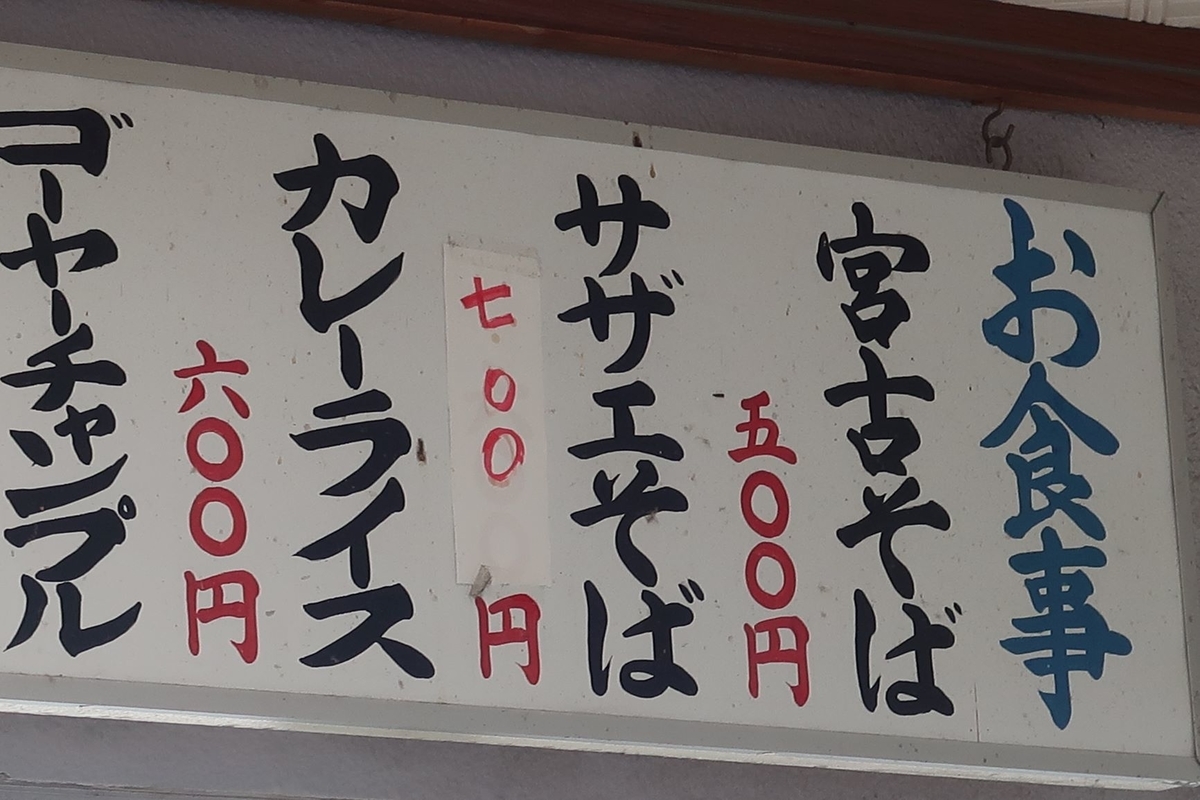 お食事
宮古そば
五〇〇円
サザエそば
七〇〇円
カレーライス
六〇〇円
ゴーヤーチャンプル